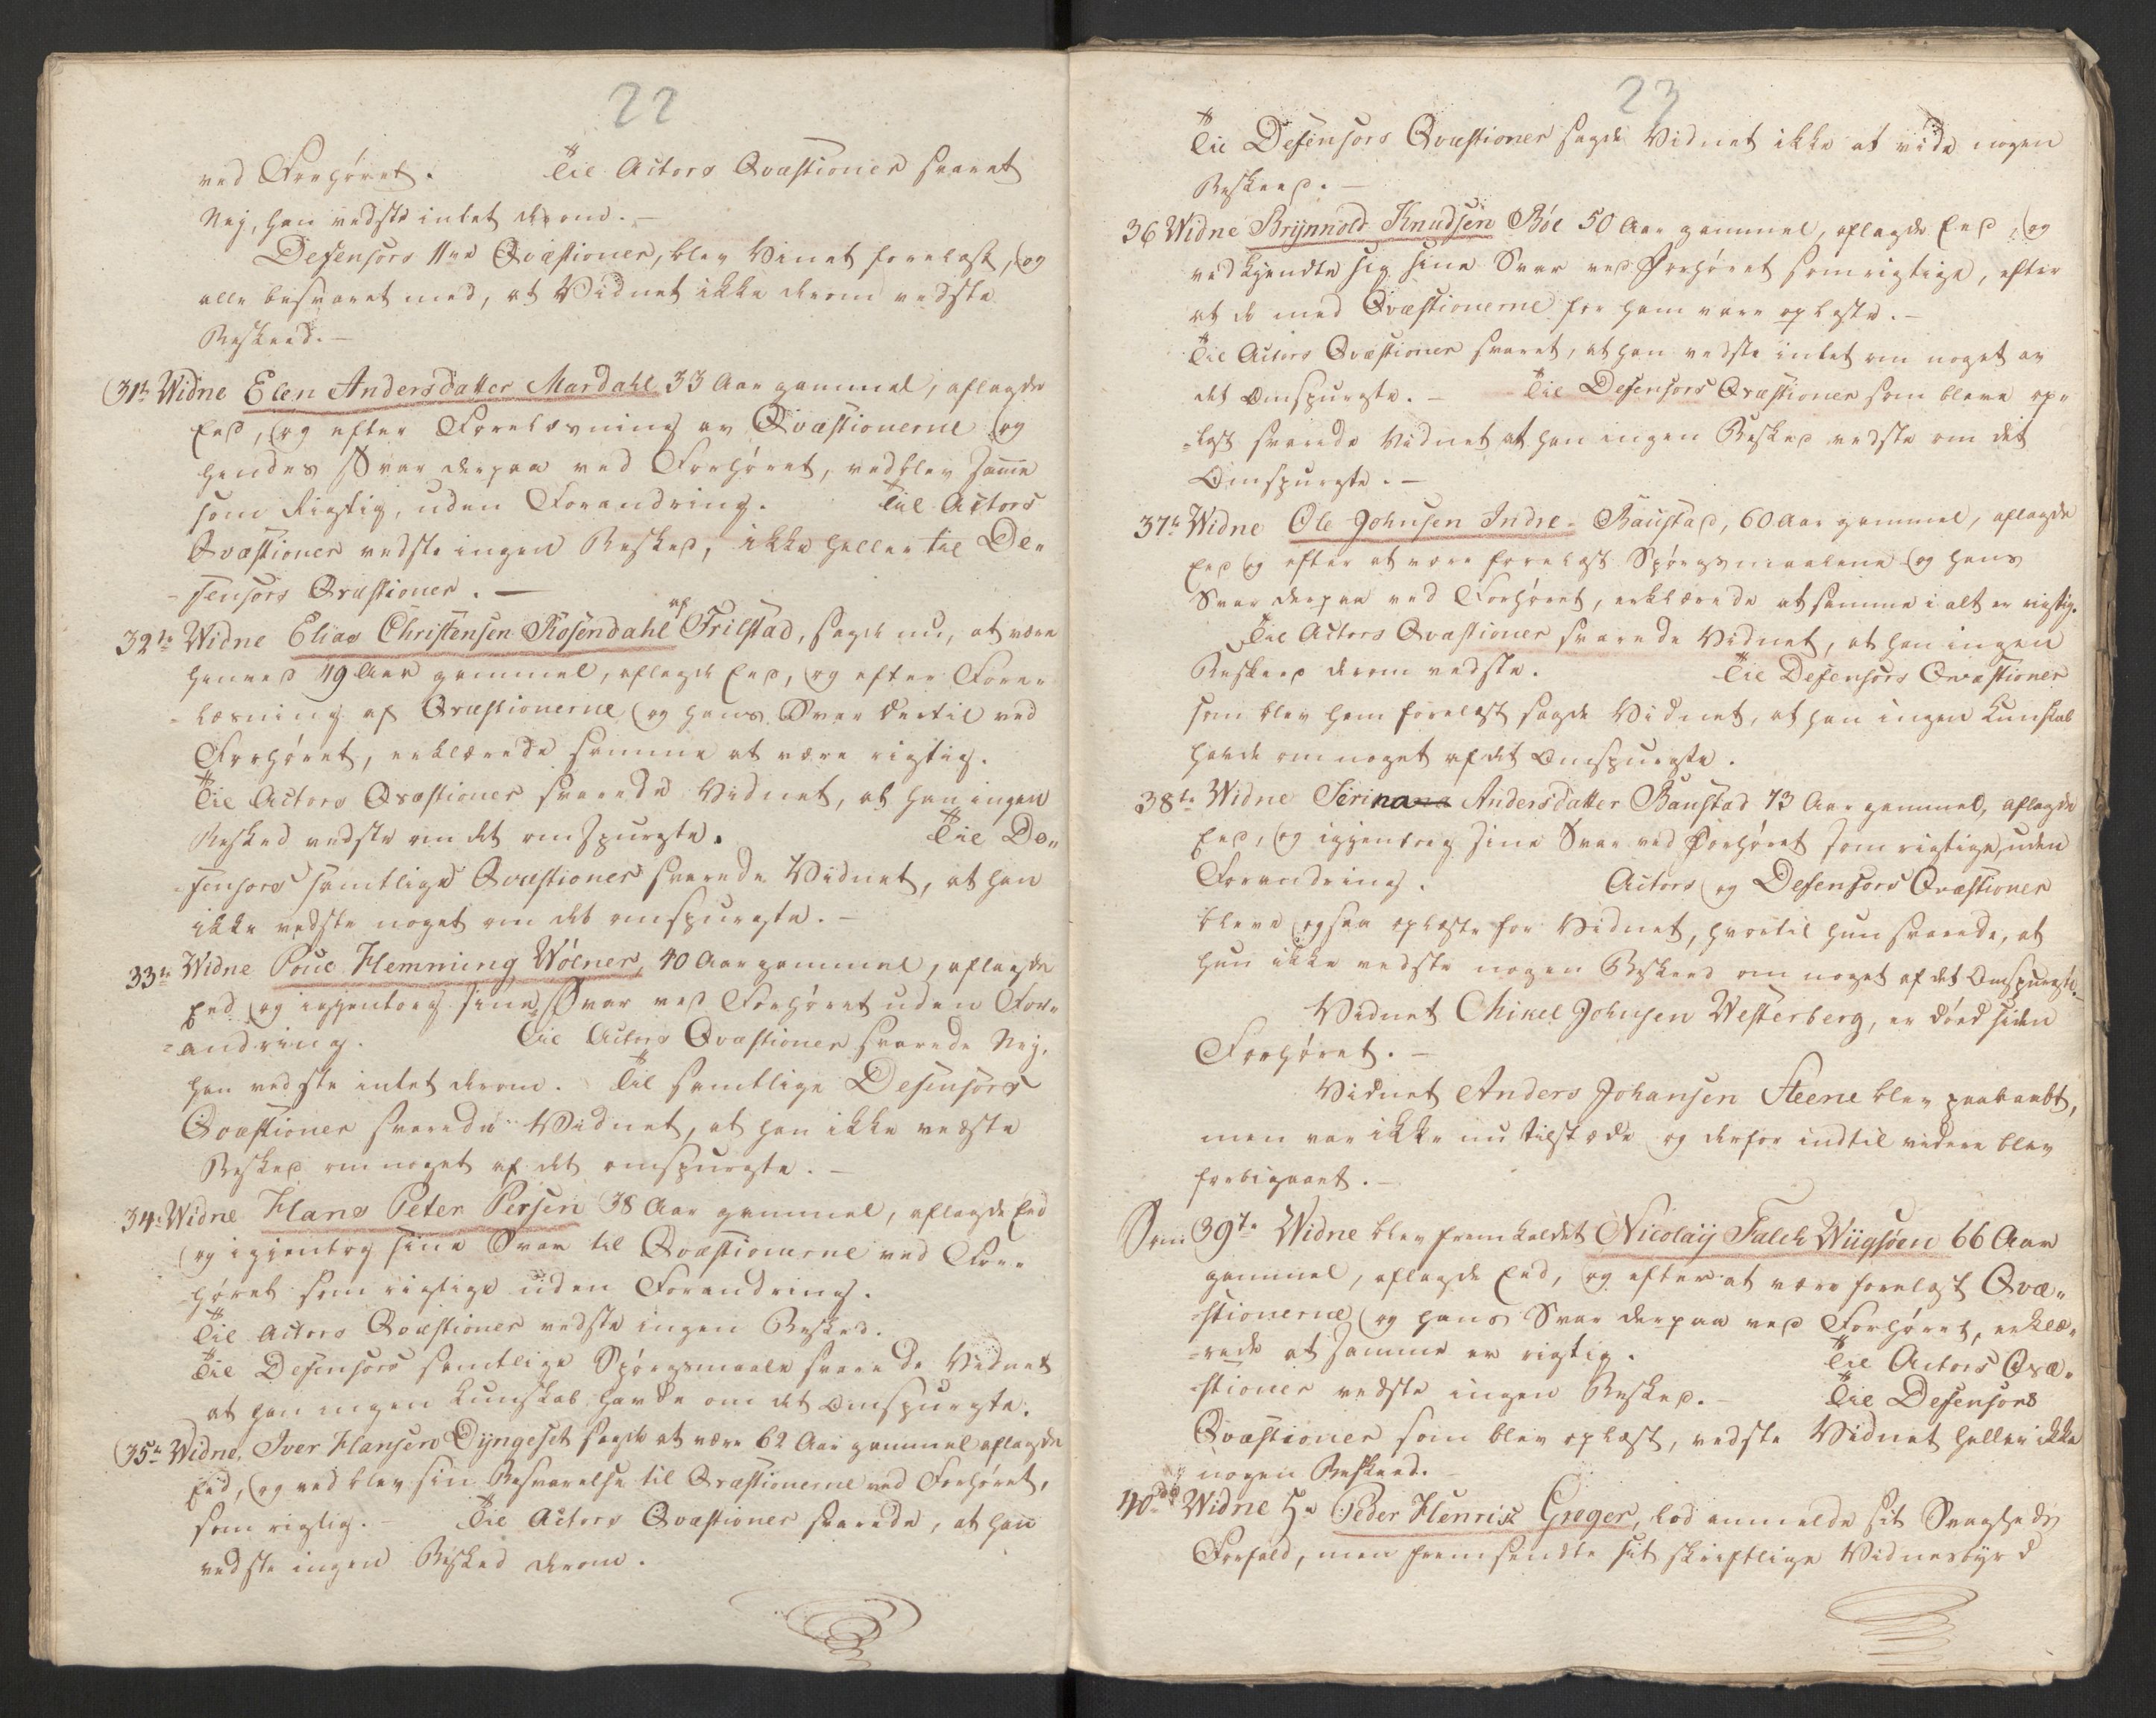 22
ved Forhøret. Til Actors Qvæstioner svaret
Nej, han vedste intet derom. –
Defensors Qvæstioner, blev Vinet forelæst, og
alle besvaret med, at Vidnet ikke derom vedste
Beskeed. –
31te Widne Elen Andersdatter Mardahl 33 Aar gammel, aflagde
Eed, og efter Forelæsning av Qvæstionerne og
hendes Svar derpaa ved Forhøret, vedblev samme
som Rigtig, uden Forandring. Til Actors
Qvæstioner vedste ingen Beskeed, ikke heller til De-
-fensors Qvæstioner. –
32te Widne Elias Christensen Rosendahl af Frilstad, sagde nu, at være
henved 49 Aar gammel, aflagde Eed, og efter Fore-
-læsning af Qvæstionerne og hans Svar dertil ved
Forhøret, erklærede samme at være rigtig.
Til Actors Qvæstioner svarede Vidnet, at han ingen
Besked vedste om det omspurgte. Til De-
-fensors samtlige Qvæstioner svarede Vidnet, at han
ikke vedste noget om det omspurgte. –
33te Widne Poul Hemming Wólner, 40 Aar gammel, aflagde
Eed og igjentog sine Svar ved Forhøret uden For-
-andring. Til Actors Qvæstioner svarede Nej,
han vedste intet derom. Til samtlige Defensors
Qvæstioner svarede Vidnet, at han ikke vedste
Besked om noget af det omspurgte. –
34te Widne Hans Peter Persen 38 Aar gammel, aflagde Eed
og igjentog sine Svar til Qvæstionerne ved For-
høret som rigtige uden Forandring.
Til Actors Qvæstioner vedste ingen Besked.
Til Defensors samtlige Spørgsmaale svarede Vidnet
at han ingen Kunskab havde om det Omspurgte.
35te Widne, Iver Hansen Dyngeset sagde at være 62 Aar gammel aflagde
Eed, og vedblev sin Besvarelse til Qvæstionerne ved Forhøret,
som rigtig. – Til Actors Qvæstioner svarede, at han
vedste ingen Besked derom.
23
Til Defensors Qvæstioner sagde Vidnet ikke at vide nogen
Beskeed. –
36 Widne Brynnold Knudsen Bøe 50 Aar gammel, aflagde Eed, og
vedkjendte sig sine Svar ved Forhøret som rigtige, efter
at de med Qvæstionerne for ham vare oplæste. –
Til Actors Qvæstioner svaret, at han vedste intet om noget av
det Omspurgte. – Til Defensors Qvæstioner som bleve op-
-læst svarede Vidnet at han ingen Besked vedste om det
Omspurgte. –
37te Widne Ole Johnsen Indre-Baustad, 60 Aar gammel, aflagde
Eed og efter at være forelæst Spørgsmaalene og hans
Svar derpaa ved Forhøret, erklærede at samme i alt er rigtig.
Til Actors Qvæstioner svarede Vidnet, at han ingen
Beskeed derom vedste. Til Defensors Qvæstioner
som blev ham forelæst sagde Vidnet, at han ingen Kunskab
havde om noget af det Omspurgte.
38te Widne Serina Andersdatter Baustad 73 Aar gammel, aflagde
Eed, og igjentog sine Svar ved Forhøret som rigtige, uden
Forandring. Actors og Defensors Qvæstioner
bleve ogsaa oplæste for Vidnet, hvortil hun svarede, at
hun ikke vedste nogen Beskeed om noget af det Omspurgte. –
Vidnet Mikel Johnsen Westerberg, er død siden
Forhøret. –
Vidnet Anders Johansen Steene blev paaraabt,
men var ikke nu tilstæde og derfor indtil videre blev
forbigaaet. –
Som 39te Widne blev fremkaldet Nicolaij Falch Wiigsøen 66 Aar
gammel, aflagde Eed, og efter at være forelæst Qvæ-
-stionerne og hans Svar derpaa ved Forhøret, erklæ-
-rede at samme er rigtig. Til Actors Qvæ-
-stioner vedste ingen Besked. – Til Defensors
Qvæstioner som blev oplæst, vedste Vidnet heller ikke
nogen Beskeed.
40de Widne Hr Peder Henrik Greger, lod anmelde sit Svagheds
Forfald, men fremsendte sit skriftlige Vidnesbyrd